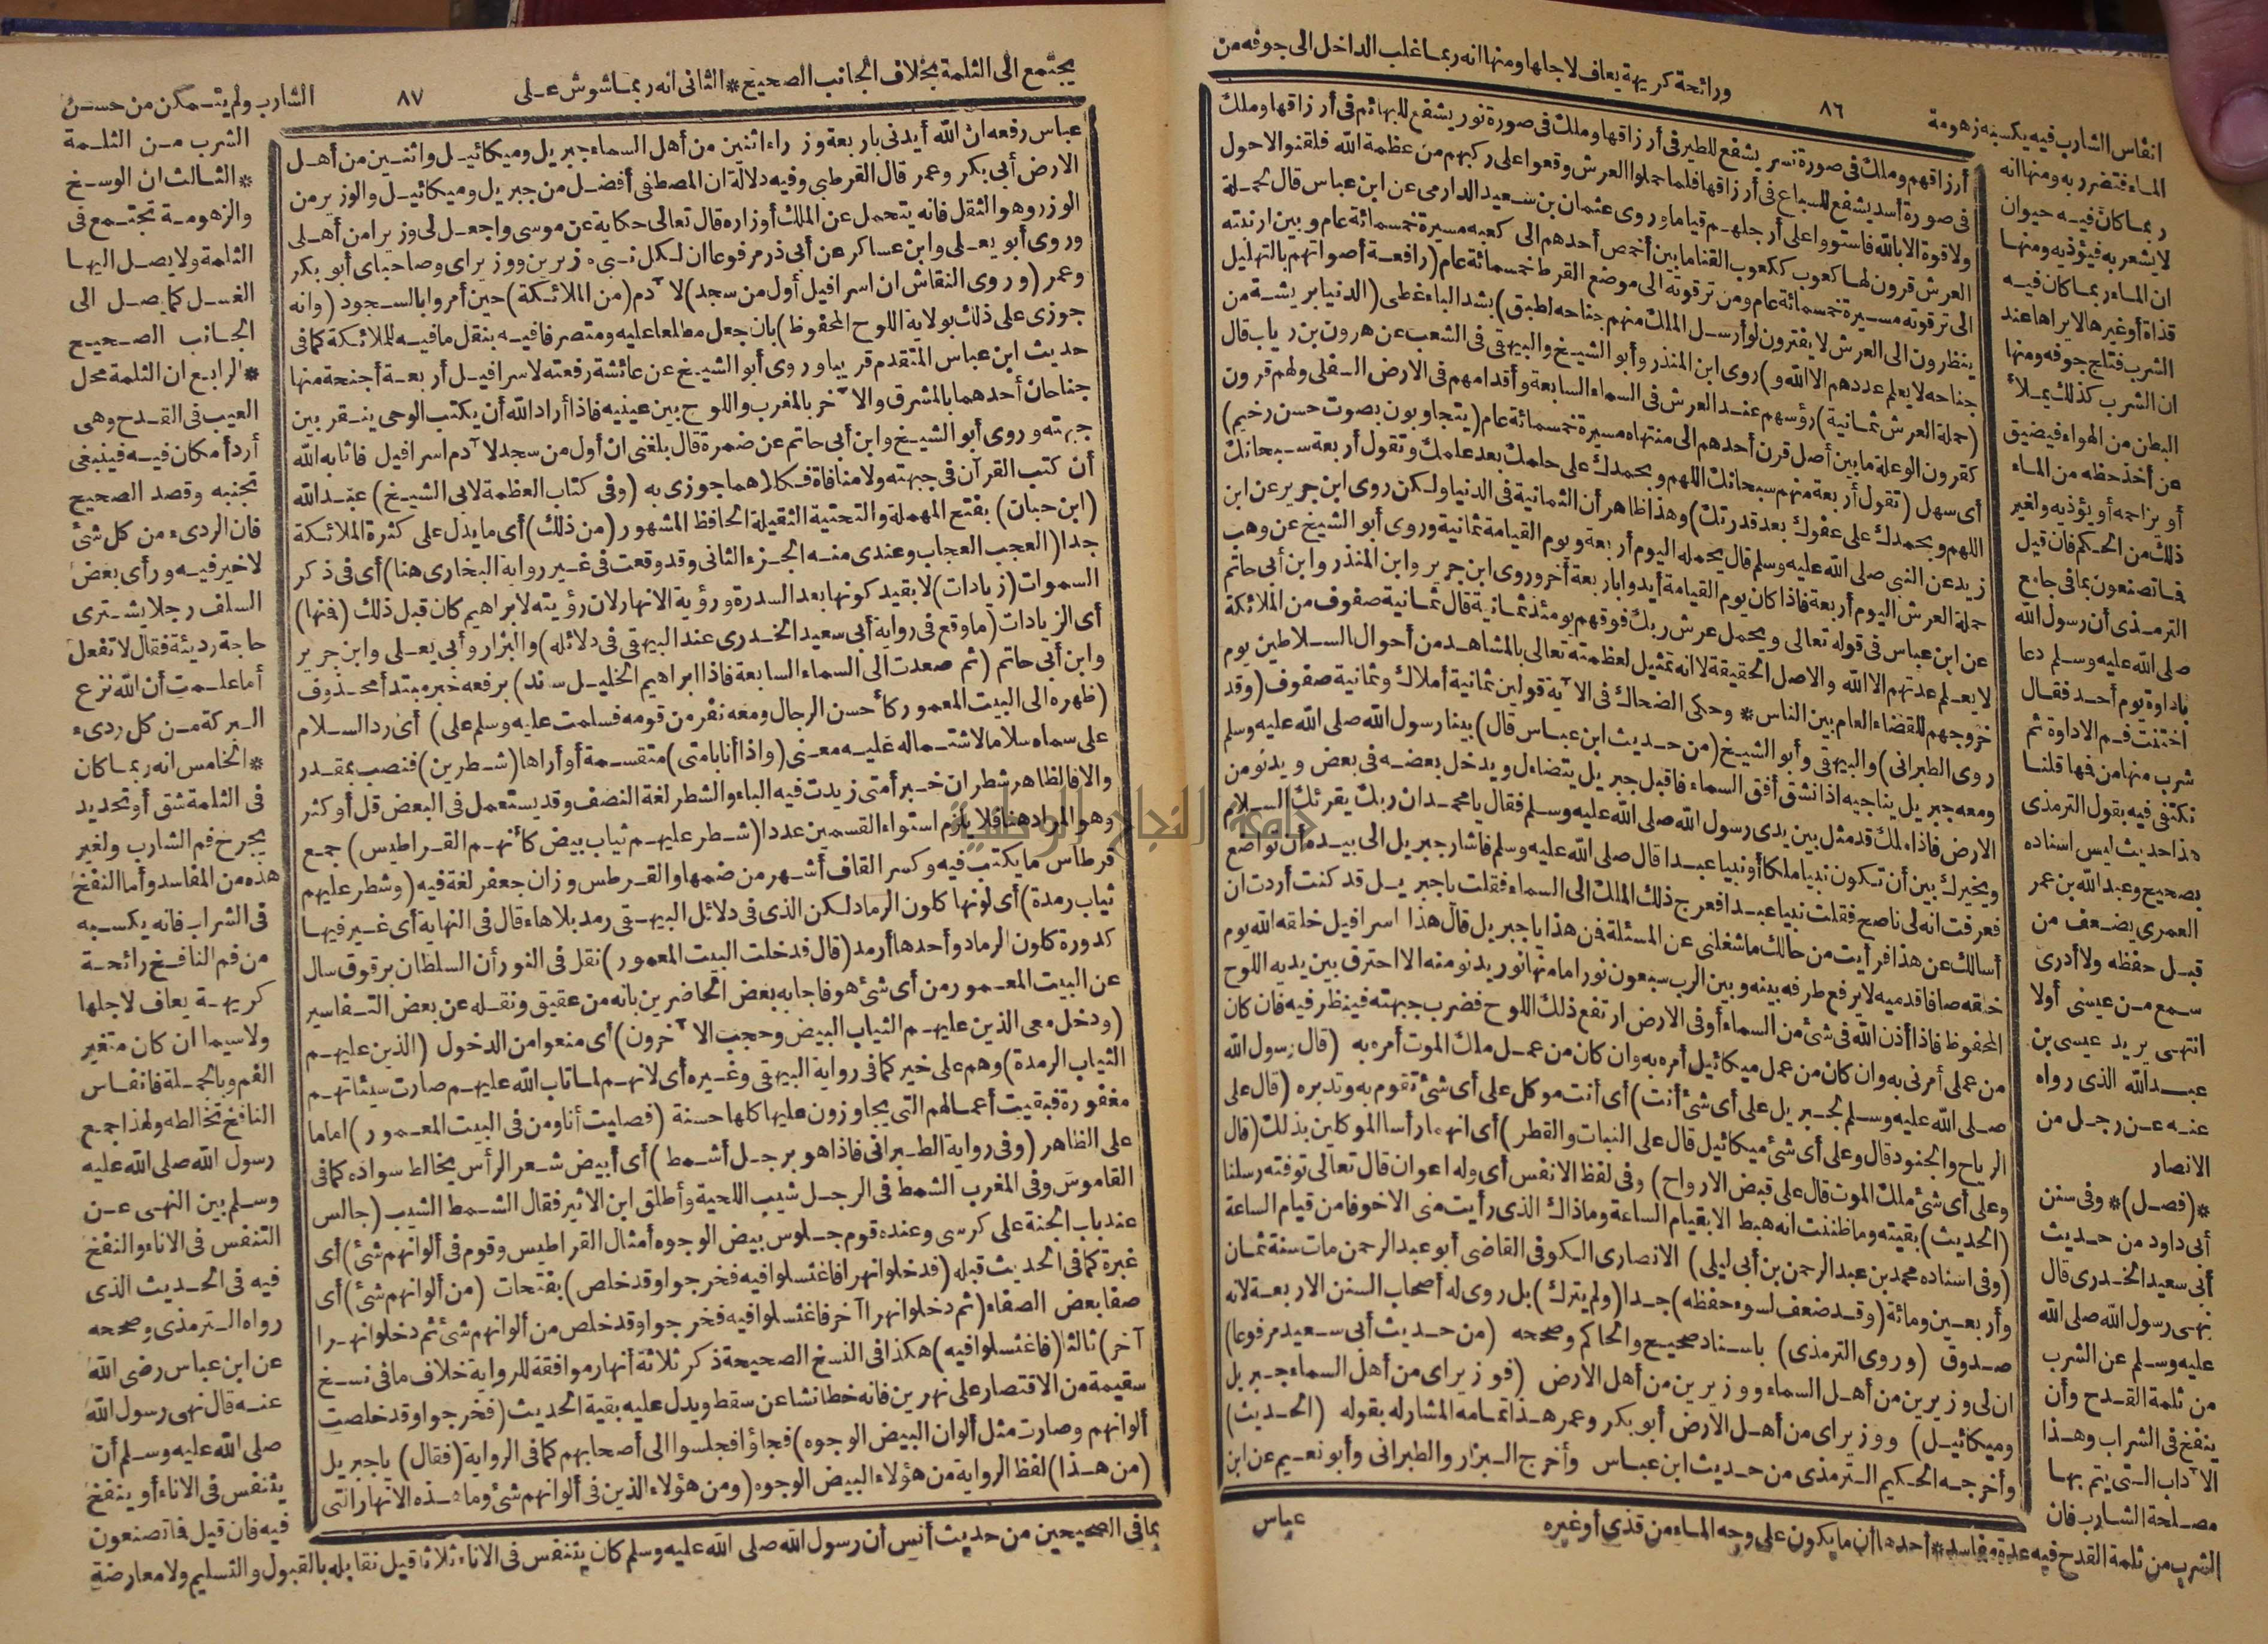 ورائحة كريهة يعاف لاجلها ومنها انه ربما غلب الداخل الى جوفه من
٨٦
انفاس الشارب فيه يكسبه زهومة
الماء فتضرر به ومنها انه
ربما كان فيه حيوان
لا يشعر به فيؤذيه ومنها
ان الماء ربما كان فيه
قذاة أو غيرها لا يراها عند
الشرب فتلج جوفه ومنها
ان الشرب كذلك يملأ
البطن من الهواء فيضيق
عن أخذ حظه من الماء
أو يزاحمه أو يؤذيه ولغير
ذلك من الحكم فان قيل
فما تصنعون بما فى جامع
الترمذى أن رسول الله
صلى الله عليه وسلم دعا
باداوة يوم أحد فقال
اختنث فم الاداوة ثم
شرب منها من فها قلنا
نكتفى فيه بقول الترمذى
هذا حديث ليس اسناده
بصحيح وعبد الله بن عمر
العمرى يضعف من
قبل حفظه ولا أدرى
سمع من عيسى أولا
انتهى يريد عيسى بن
عبد الله الذى رواه
عنه عن رجل من
الانصار
*(فصل)* وفى سنن
أبى داود من حديث
أبى سعيد الخدرى قال
نهى رسول الله صلى الله
عليه وسلم عن الشرب
من ثلمة القدح وأن
ينفخ فى الشراب وهذا
الآداب التى يتم بها
مصلحة الشارب فان
الشرب من ثلمة القدح فيه عدة مفاسد* أحدها أن ما يكون على وجه الماء من قذى أو غيره
أرزاقهم وملك فى صورة نسر يشفع للطير فى أرزاقها وملك فى صورة ثور يشفع للبهائم فى أرزاقها وملك
فى صورة أسد يشفع للسباع فى أرزاقها فلما حملوا العرش وقعوا على ركبهم من عظمة الله فلقنوا لاحول
ولا قوة الا بالله فاستووا على أرجلهم قياما وروى عثمان بن سعيد الدارمى عن ابن عباس قال لحملة
العرش قرون لها كعوب ككعوب القنا ما بين أخمص أحدهم الى كعبه مسيرة خمسمائة عام وبين ارنبته
الى ترقوته مسيرة خمسمائة عام ومن ترقوته الى موضع القرط خمسمائة عام (رافعة أصواتهم بالتهليل
ينظرون الى العرش لا يفترون لو أرسل الملك منهم جناحه لطبق) بشد الباء غطى (الدنيا بريشة من
جناحه لا يعلم عددهم الا الله و) روى ابن المنذر وأبو الشيخ والبيهقى فى الشعب عن هرون بن رياب قال
(حملة العرش ثمانية) رؤسهم عند العرش فى السماء السابعة وأقدامهم فى الارض السفلى ولهم قرون
كقرون الوعلة ما بين أصل قرن أحدهم الى منتهاه مسيرة خمسمائة عام (يتجاوبون بصوت حسن رخيم)
أى سهل (تقول أربعة منهم سبحانك اللهم وبحمدك على حلمك بعد علمك وتقول أربعة سبحانك
اللهم وبحمدك على عفوك بعد قدرتك) وهذا ظاهر أن الثمانية فى الدنيا ولكن روى ابن جرير عن ابن
زيد عن النبى صلى الله عليه وسلم قال يحمله اليوم أربعة ويوم القيامة ثمانية وروى أبو الشيخ عن وهب
حملة العرش اليوم أربعة فاذا كان يوم القيامة أيدوا بأربعة أخر وروى ابن جرير وابن المنذر وابن أبى حاتم
عن ابن عباس فى قوله تعالى ويحمل عرش ربك فوقهم يومئذ ثمانية قال ثمانية صفوف من الملائكة
لا يعلم عدتهم الا الله والاصل الحقيقة لا انه تمثيل لعظمته تعالى بالمشاهد من أحوال السلاطين يوم
خروجهم للقضاء العام بين الناس* وحكى الضحاك فى الآية قولين ثمانية أملاك وثمانية صفوف (وقد
روى الطبرانى) والبيهقى وأبو الشيخ (من حديث ابن عباس قال) بينا رسول الله صلى الله عليه وسلم
ومعه جبريل يناجيه اذ انشق أفق السماء فاقبل جبريل يتضاءل ويدخل بعضه فى بعض ويدنو من
الارض فاذا ملك قد مثل بين يدى رسول الله صلى الله عليه وسلم فقال يا محمد ان ربك يقرئك السلام
ويخيرك بين أن تكون نبيا ملكا أو نبيا عبدا قال صلى الله عليه وسلم فاشار جبريل الى بيده أن تواضع
فعرفت انه لى ناصح فقلت نبيا عبدا فعرج ذلك الملك الى السماء فقلت يا جبريل قد كنت أردت ان
أسالك عن هذا فرأيت من حالك ما شغلنى عن المسئلة فمن هذا يا جبريل قال هذا اسرافيل خلقه الله يوم
خلقه صافا قدميه لا يرفع طرفه بينه وبين الرب سبعون نورا ما منها نور يدنو منه الا احترق بين يديه اللوح
المحفوظ فاذا أذن الله فى شئ من السماء أو فى الارض ارتفع ذلك اللوح فضرب جبهته فينظر فيه فان كان
من عملى أمرنى به وان كان من عمل ميكائيل أمره به وان كان من عمل ملك الموت أمره به (قال رسول الله
صلى الله عليه وسلم لجبريل على أى شئ أنت) أى أنت موكل على أى شئ تقوم به وتدبره (قال على
الرياح والجنود قال وعلى أى شئ ميكائيل قال على النبات والقطر) أى انهما رأسا الموكلين بذلك (قال
وعلى أى شئ ملك الموت قال على قبض الارواح) وفى لفظ الانفس أى وله اعوان قال تعالى توفته رسلنا
(الحديث) بقيته وما ظننت انه هبط الا بقيام الساعة وما ذاك الذى رأيت منى الا خوفا من قيام الساعة
(وفى اسناده محمد بن عبد الرحمن بن أبى ليلى) الانصارى الكوفى القاضى أبو عبد الرحمن مات سنة ثمان
وأربعين ومائة (وقد ضعف لسوء حفظه) جدا (ولم يترك) بل روى له أصحاب السنن الاربعة لانه
صدوق (وروى الترمذى) باسناد صحيح والحاكم وصححه (من حديث أبى سعيد مرفوعا)
ان لى وزيرين من أهل السماء ووزيرين من أهل الارض (فوزيراى من أهل السماء جبريل
وميكائيل) ووزيراى من أهل الارض أبو بكر وعمر هذا تمامه المشار له بقوله (الحديث)
وأخرجه الحكيم الترمذى من حديث ابن عباس وأخرج البزار والطبرانى وأبو نعيم عن ابن
عباس
يجتمع الى الثلمة بخلاف الجانب الصحيح* الثانى انه ربما شوش على
٨٧
الشارب ولم يتمكن من حسن
الشرب من الثلمة
*الثالث ان الوسخ
والزهومة تجتمع فى
الثلمة ولا يصل اليها
الغسل كما يصل الى
الجانب الصحيح
*الرابع ان الثلمة محل
العيب فى القدح وهى
أردأ مكان فيه فينبغى
تجنبه وقصد الصحيح
فان الردىء من كل شئ
لا خير فيه ورأى بعض
السلف رجلا يشترى
حاجة رديئة فقال لا تفعل
أما علمت أن الله نزع
البركة من كل ردىء
*الخامس انه ربما كان
فى الثلمة شق أو تحديد
يجرح فم الشارب ولغير
هذه من المفاسد وأما النفخ
فى الشراب فانه يكسبه
من فم النافخ رائحة
كريهة يعاف لاجلها
ولا سيما ان كان متغير
الفم وبالجملة فانفاس
النافخ تخالطه ولهذا جمع
رسول الله صلى الله عليه
وسلم بين النهى عن
التنفس فى الاناء والنفخ
فيه فى الحديث الذى
رواه الترمذى وصححه
عن ابن عباس رضى الله
عنه قال نهى رسول الله
صلى الله عليه وسلم أن
يتنفس فى الاناء أو ينفخ
فيه فان قيل فما تصنعون
بما فى الصحيحين من حديث أنس أن رسول الله صلى الله عليه وسلم كان يتنفس فى الاناء ثلاثا قيل نقابله بالقبول والتسليم ولا معارضة
عباس رفعه ان الله أيدنى باربعة وزراء اثنين من أهل السماء جبريل وميكائيل واثنين من أهل
الارض أبى بكر وعمر قال القرطبى وفيه دلالة ان المصطفى أفضل من جبريل وميكائيل والوزير من
الوزر وهو الثقل فانه يتحمل عن الملك أوزاره قال تعالى حكاية عن موسى واجعل لى وزيرا من أهلى
وروى أبو يعلى وابن عساكر عن أبى ذر مرفوعا ان لكل نبى وزيرين ووزيراى وصاحباى أبو بكر
وعمر (وروى النقاش ان اسرافيل أول من سجد) لآدم (من الملائكة) حين أمروا بالسجود (وانه
جوزى على ذلك بولاية اللوح المحفوظ) بان جعل مطلعا عليه ومتصرفا فيه بنقل ما فيه للملائكة كما فى
حديث ابن عباس المتقدم قريبا وروى أبو الشيخ عن عائشة رفعته لاسرافيل أربعة أجنحة منها
جناحان أحدهما بالمشرق والآخر بالمغرب واللوح بين عينيه فاذا أراد الله أن يكتب الوحى ينقر بين
جبهته وروى أبو الشيخ وابن أبى حاتم عن ضمرة قال بلغنى ان أول من سجد لآدم اسرافيل فاثابه الله
أن كتب القرآن فى جبهته ولا منافاة فكلاهما جوزى به (وفى كتاب العظمة لابى الشيخ) عبد الله
(ابن حبان) بفتح المهملة والتحتية الثقيلة الحافظ المشهور (من ذلك) أى ما يدل على كثرة الملائكة
جدا (العجب العجاب وعندى منه الجزء الثانى وقد وقعت فى غير رواية البخارى هنا) أى فى ذكر
السموات (زيادات) لا بقيد كونها بعد السدرة ورؤية الانهار لان رؤيته لابراهيم كان قبل ذلك (فمنها)
أى الزيادات (ما وقع فى رواية أبى سعيد الخدرى عند البيهقى فى دلائله) والبزار وأبى يعلى وابن جرير
وابن أبى حاتم (ثم صعدت الى السماء السابعة فاذا ابراهيم الخليل ساند) برفعه خبر مبتدأ محذوف
(ظهره الى البيت المعمور كأحسن الرجال ومعه نفر من قومه فسلمت عليه وسلم على) أى رد السلام
على سماه سلاما لاشتماله عليه معنى (واذا أنا بامتى) منقسمة أو أراها (شطرين) فنصب بمقدر
والا فالظاهر شطران خبر أمتى زيدت فيه الباء والشطر لغة النصف وقد يستعمل فى البعض قل أو كثر
وهو المراد هنا فلا يلزم استواء القسمين عددا (شطر عليهم ثياب بيض كأنهم القراطيس) جمع
قرطاس ما يكتب فيه وكسر القاف أشهر من ضمها والقرطس وزان جعفر لغة فيه (وشطر عليهم
ثياب رمدة) أى لونها كلون الرماد لكن الذى فى دلائل البيهقى رمد بلا هاء قال فى النهاية أى غير فيها
كدورة كلون الرماد وأحدها أرمد (قال فدخلت البيت المعمور) نقل فى النور أن السلطان برقوق سال
عن البيت المعمور من أى شئ هو فاجابه بعض الحاضرين بانه من عقيق ونقله عن بعض التفاسير
(ودخل معى الذين عليهم الثياب البيض وحجب الآخرون) أى منعوا من الدخول (الذين عليهم
الثياب الرمدة) وهم على خير كما فى رواية البيهقى وغيره أى لانهم لما تاب الله عليهم صارت سيئاتهم
مغفورة فبقيت أعمالهم التى يجاوزون عليها كلها حسنة (فصليت أنا ومن فى البيت المعمور) اماما
على الظاهر (وفى رواية الطبرانى فاذا هو برجل أشمط) أى أبيض شعر الرأس يخالط سواده كما فى
القاموس وفى المغرب الشمط فى الرجل شيب اللحية وأطلق ابن الاثير فقال الشمط الشيب (جالس
عند باب الجنة على كرسى وعنده قوم جلوس بيض الوجوه أمثال القراطيس وقوم فى ألوانهم شئ) أى
غبرة كما فى الحديث قبله (فدخلوا نهرا فاغتسلوا فيه فخرجوا وقد خلص) بفتحات (من ألوانهم شئ) أى
صفا بعض الصفاء (ثم دخلوا نهرا آخر فاغتسلوا فيه فخرجوا وقد خلص من ألوانهم شئ ثم دخلوا نهرا
آخر) ثالثا (فاغتسلوا فيه) هكذا فى النسخ الصحيحة ذكر ثلاثة أنهار موافقة للرواية خلاف ما فى نسخ
سقيمة من الاقتصار على نهرين فانه خطا نشا عن سقط ويدل عليه بقية الحديث (فخرجوا وقد خلصت
ألوانهم وصارت مثل ألوان البيض الوجوه) فجاؤا فجلسوا الى أصحابهم كما فى الرواية (فقال) يا جبريل
(من هذا) لفظ الرواية من هؤلاء البيض الوجوه (ومن هؤلاء الذين فى ألوانهم شئ وما هذه الانهار التى
جامعة النجاح الوطنية